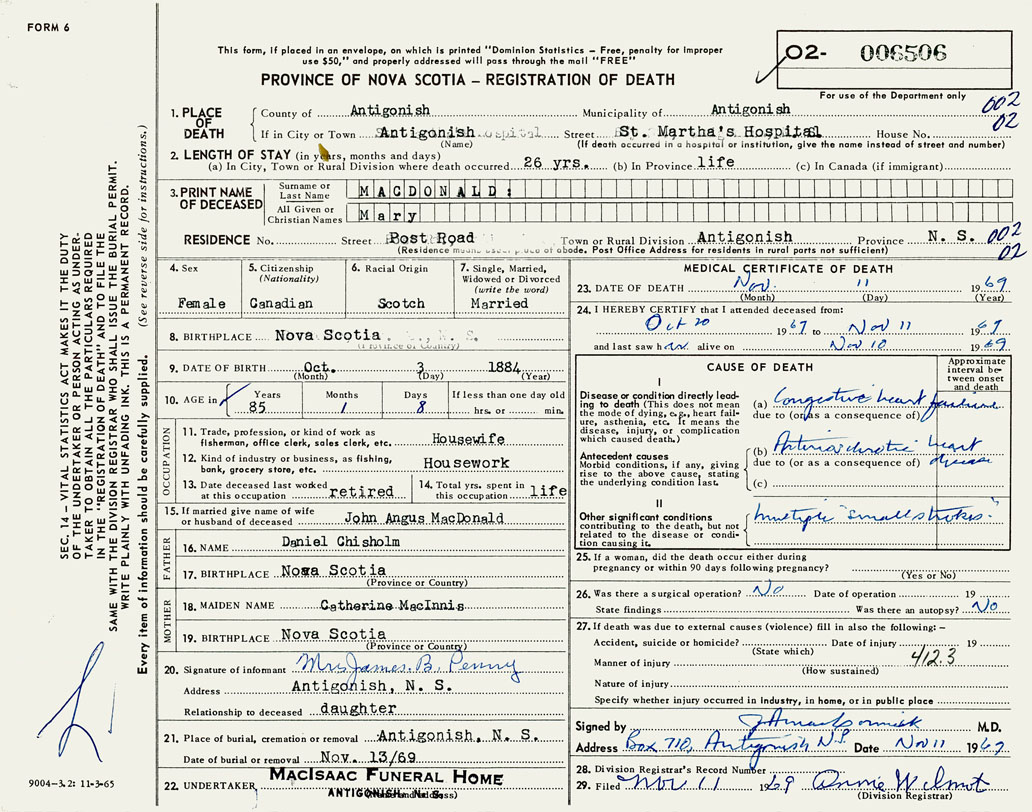 FORM 6
This form, if placed in an envelope, on which is printed "Dominion Statistics – Free, penalty for improper
use $50," and properly addressed will pass through the mail "FREE"
PROVINCE OF NOVA SCOTIA – REGISTRATION OF DEATH
O2- 006506
For use of the Department only
002
02
1. PLACE OF DEATH
County of Antigonish Municipality of Antigonish
If in City or Town Antigonish Street St. Martha's Hospital House No.
(Name) (If death occurred in a hospital or institution, give the name instead of street and number)
2. LENGTH OF STAY (in years, months and days)
(a) In City, Town or Rural Division where death occurred 26 yrs. (b) In Province life (c) In Canada (if immigrant)
3. PRINT NAME OF DECEASED
Surname or Last Name MACDONALD:
All Given or Christian Names Mary
RESIDENCE No. Street Post Road Town or Rural Division Antigonish Province N. S. 002
02
(Residence means usual place of abode. Post Office Address for residents in rural parts not sufficient)
4. Sex
Female
5. Citizenship
(Nationality)
Canadian
6. Racial Origin
Scotch
7. Single, Married,
Widowed or Divorced
(write the word)
Married
8. BIRTHPLACE Nova Scotia
(Province or Country)
9. DATE OF BIRTH Oct. 3 1884
(Month) (Day) (Year)
10. AGE in Years Months Days If less than one day old
85 1 8 hrs. or min.
OCCUPATION
11. Trade, profession, or kind of work as
fisherman, office clerk, sales clerk, etc. Housewife
12. Kind of industry or business, as fishing,
bank, grocery store, etc. Housework
13. Date deceased last worked
at this occupation retired
14. Total yrs. spent in
this occupation life
15. If married give name of wife
or husband of deceased John Angus MacDonald
FATHER
16. NAME Daniel Chisholm
17. BIRTHPLACE Nova Scotia
(Province or Country)
MOTHER
18. MAIDEN NAME Catherine MacInnis
19. BIRTHPLACE Nova Scotia
(Province or Country)
20. Signature of informant Mrs James. B. Penny
Address Antigonish, N. S.
Relationship to deceased daughter
21. Place of burial, cremation or removal Antigonish, N. S.
Date of burial or removal Nov. 13/69
22. UNDERTAKER MACISAAC FUNERAL HOME
ANTIGONISH, N. S.
MEDICAL CERTIFICATE OF DEATH
23. DATE OF DEATH Nov. 11 1969
(Month) (Day) (Year)
24. I HEREBY CERTIFY that I attended deceased from:
Oct 20 1969 to Nov 11 1969
and last saw her alive on Nov 10 1969
CAUSE OF DEATH
Approximate
interval be-
tween onset
and death
I
Disease or condition directly lead-
ing to death (This does not mean
the mode of dying, e.g., heart fail-
ure, asthenia, etc. It means the
disease, injury, or complication
which caused death.)
(a) Congestive heart failure
due to (or as a consequence of)
Antecedent causes
Morbid conditions, if any, giving
rise to the above cause, stating
the underlying condition last.
(b) Arteriosclerotic heart disease
due to (or as a consequence of)
(c)
II
Other significant conditions
contributing to the death, but not
related to the disease or condi-
tion causing it.
multiple "small strokes."
25. If a woman, did the death occur either during
pregnancy or within 90 days following pregnancy?
(Yes or No)
26. Was there a surgical operation? No Date of operation 19
State findings Was there an autopsy? No
27. If death was due to external causes (violence) fill in also the following: –
Accident, suicide or homicide? Date of injury 19
(State which) 412.3
Manner of injury
(How sustained)
Nature of injury
Specify whether injury occurred in industry, in home, or in public place
Signed by M.D.
Address Box 710, Antigonish N.S. Date Nov 11 1969
28. Division Registrar's Record Number
29. Filed Nov 11 1969 Annie Wilmot
(Division Registrar)
SEC. 14 – VITAL STATISTICS ACT MAKES IT THE DUTY
OF THE UNDERTAKER OR PERSON ACTING AS UNDER-
TAKER TO OBTAIN ALL THE PARTICULARS REQUIRED
IN THE "REGISTRATION OF DEATH" AND TO FILE THE
SAME WITH THE DIVISION REGISTRAR WHO SHALL ISSUE THE BURIAL PERMIT.
WRITE PLAINLY WITH UNFADING INK. THIS IS A PERMANENT RECORD.
Every item of information should be carefully supplied. (See reverse side for instructions.)
9004-3.2: 11-3-65